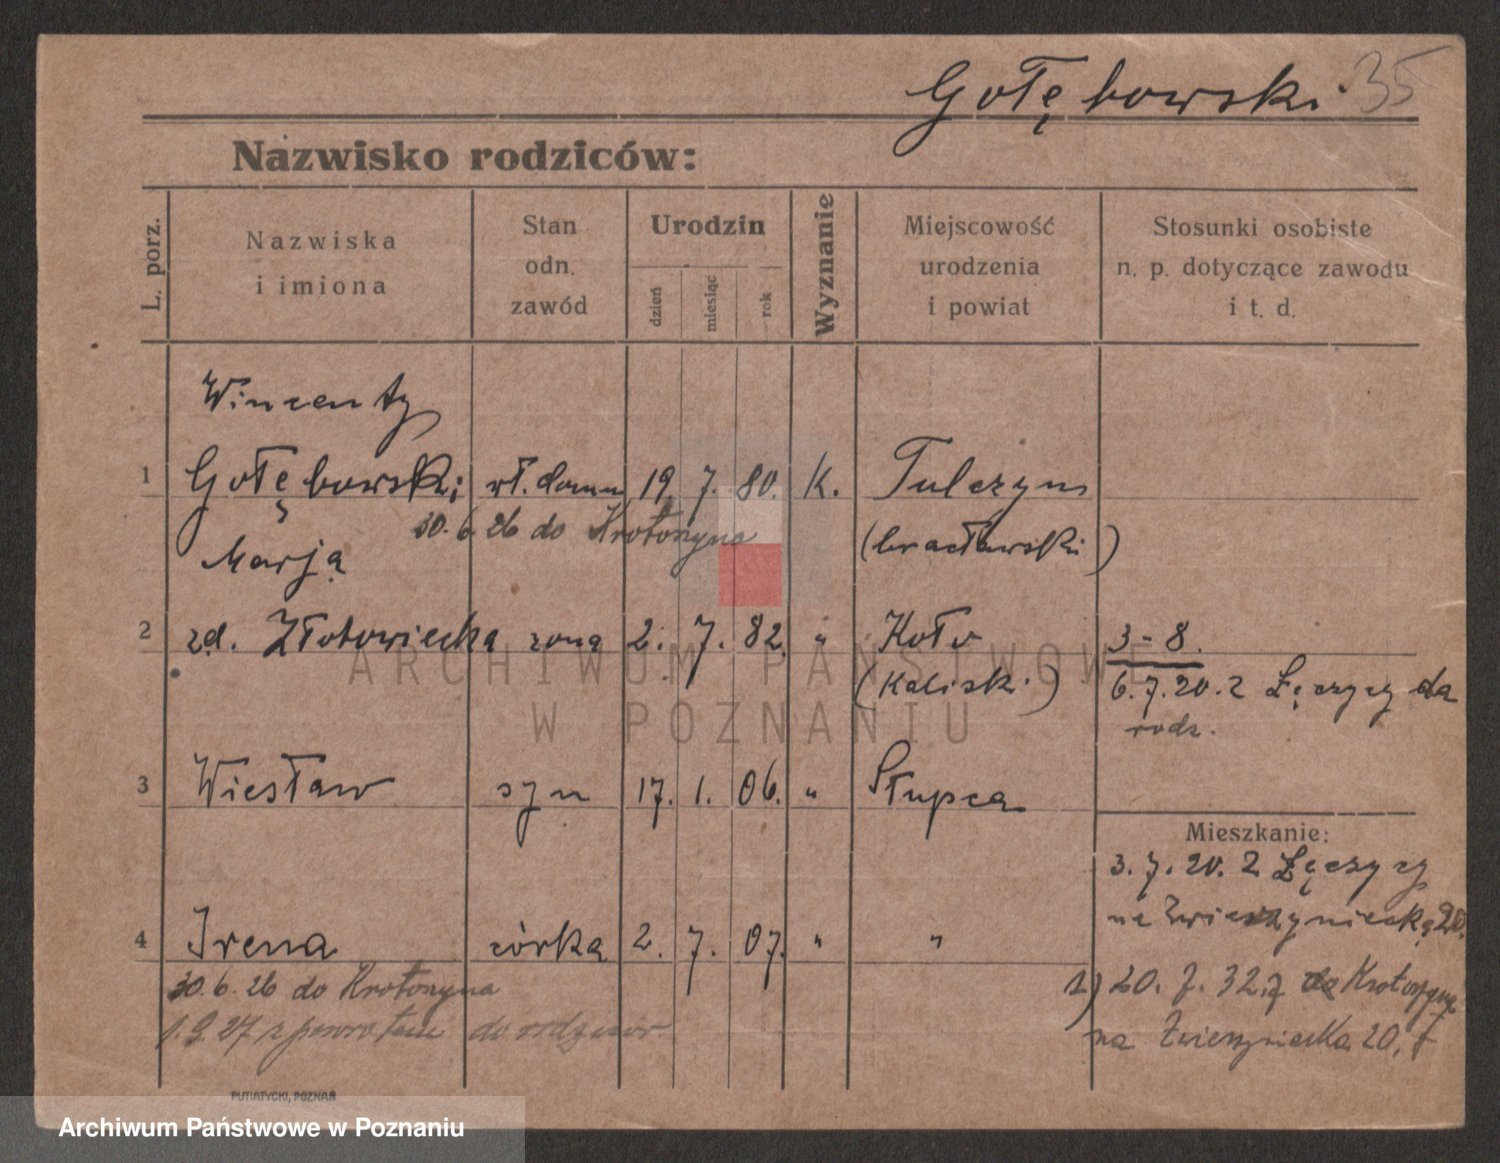 Gołębowski 35
Nazwisko rodziców:
L. porz.
Nazwiska
i imiona
Stan
odn.
zawód
Urodzin
dzień
miesiąc
rok
Wyznanie
Miejscowość
urodzenia
i powiat
Stosunki osobiste
n. p. dotyczące zawodu
i t. d.
Wincenty
1 Gołębowski wł. domu 19 7. 80. K. Tulczyn
30. 6. 26 do Krotoszyna (bracławski)
Marja
2 zd. Złotowiecka żona 2. 7. 82. " Koło 3-8.
(Kaliski) 6. 7. 20. z Łęczycy do
rodz.
3 Wiesław syn 17. 1. 06. " Słupca
Mieszkanie:
3. 7. 20. z Łęczycy
na Zwierzyniecką 20.
4 Irena córka 2. 7. 07. " "
30. 6. 26 do Krotoszyna
1) 20. 7. 32. z Krotoszyna
1. 9. 27 z powrotem do rodziców
na Zwierzyniecka 20.
PUTIATYCKI, POZNAŃ
ARCHIWUM PAŃSTWOWE
W POZNANIU
Archiwum Państwowe w Poznaniu